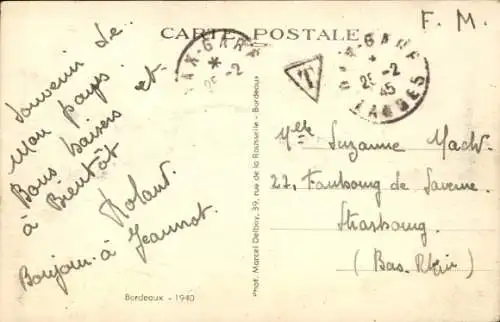 CARTE POSTALE
F. M.
DAX-GARE
*
25-2
DAX-GARE
*
25-2
45
LANDES
T
Souvenir de
Mon pays.
Bons baisers et
à Bientôt
Roland.
Bonjour à Jeannot.
Phot. Marcel Delboy, 39, rue de la Rousselle - Bordeaux
Bordeaux - 1940
Mlle Suzanne
22, Faubourg de Saverne.
Strasbourg.
(Bas. Rhin)